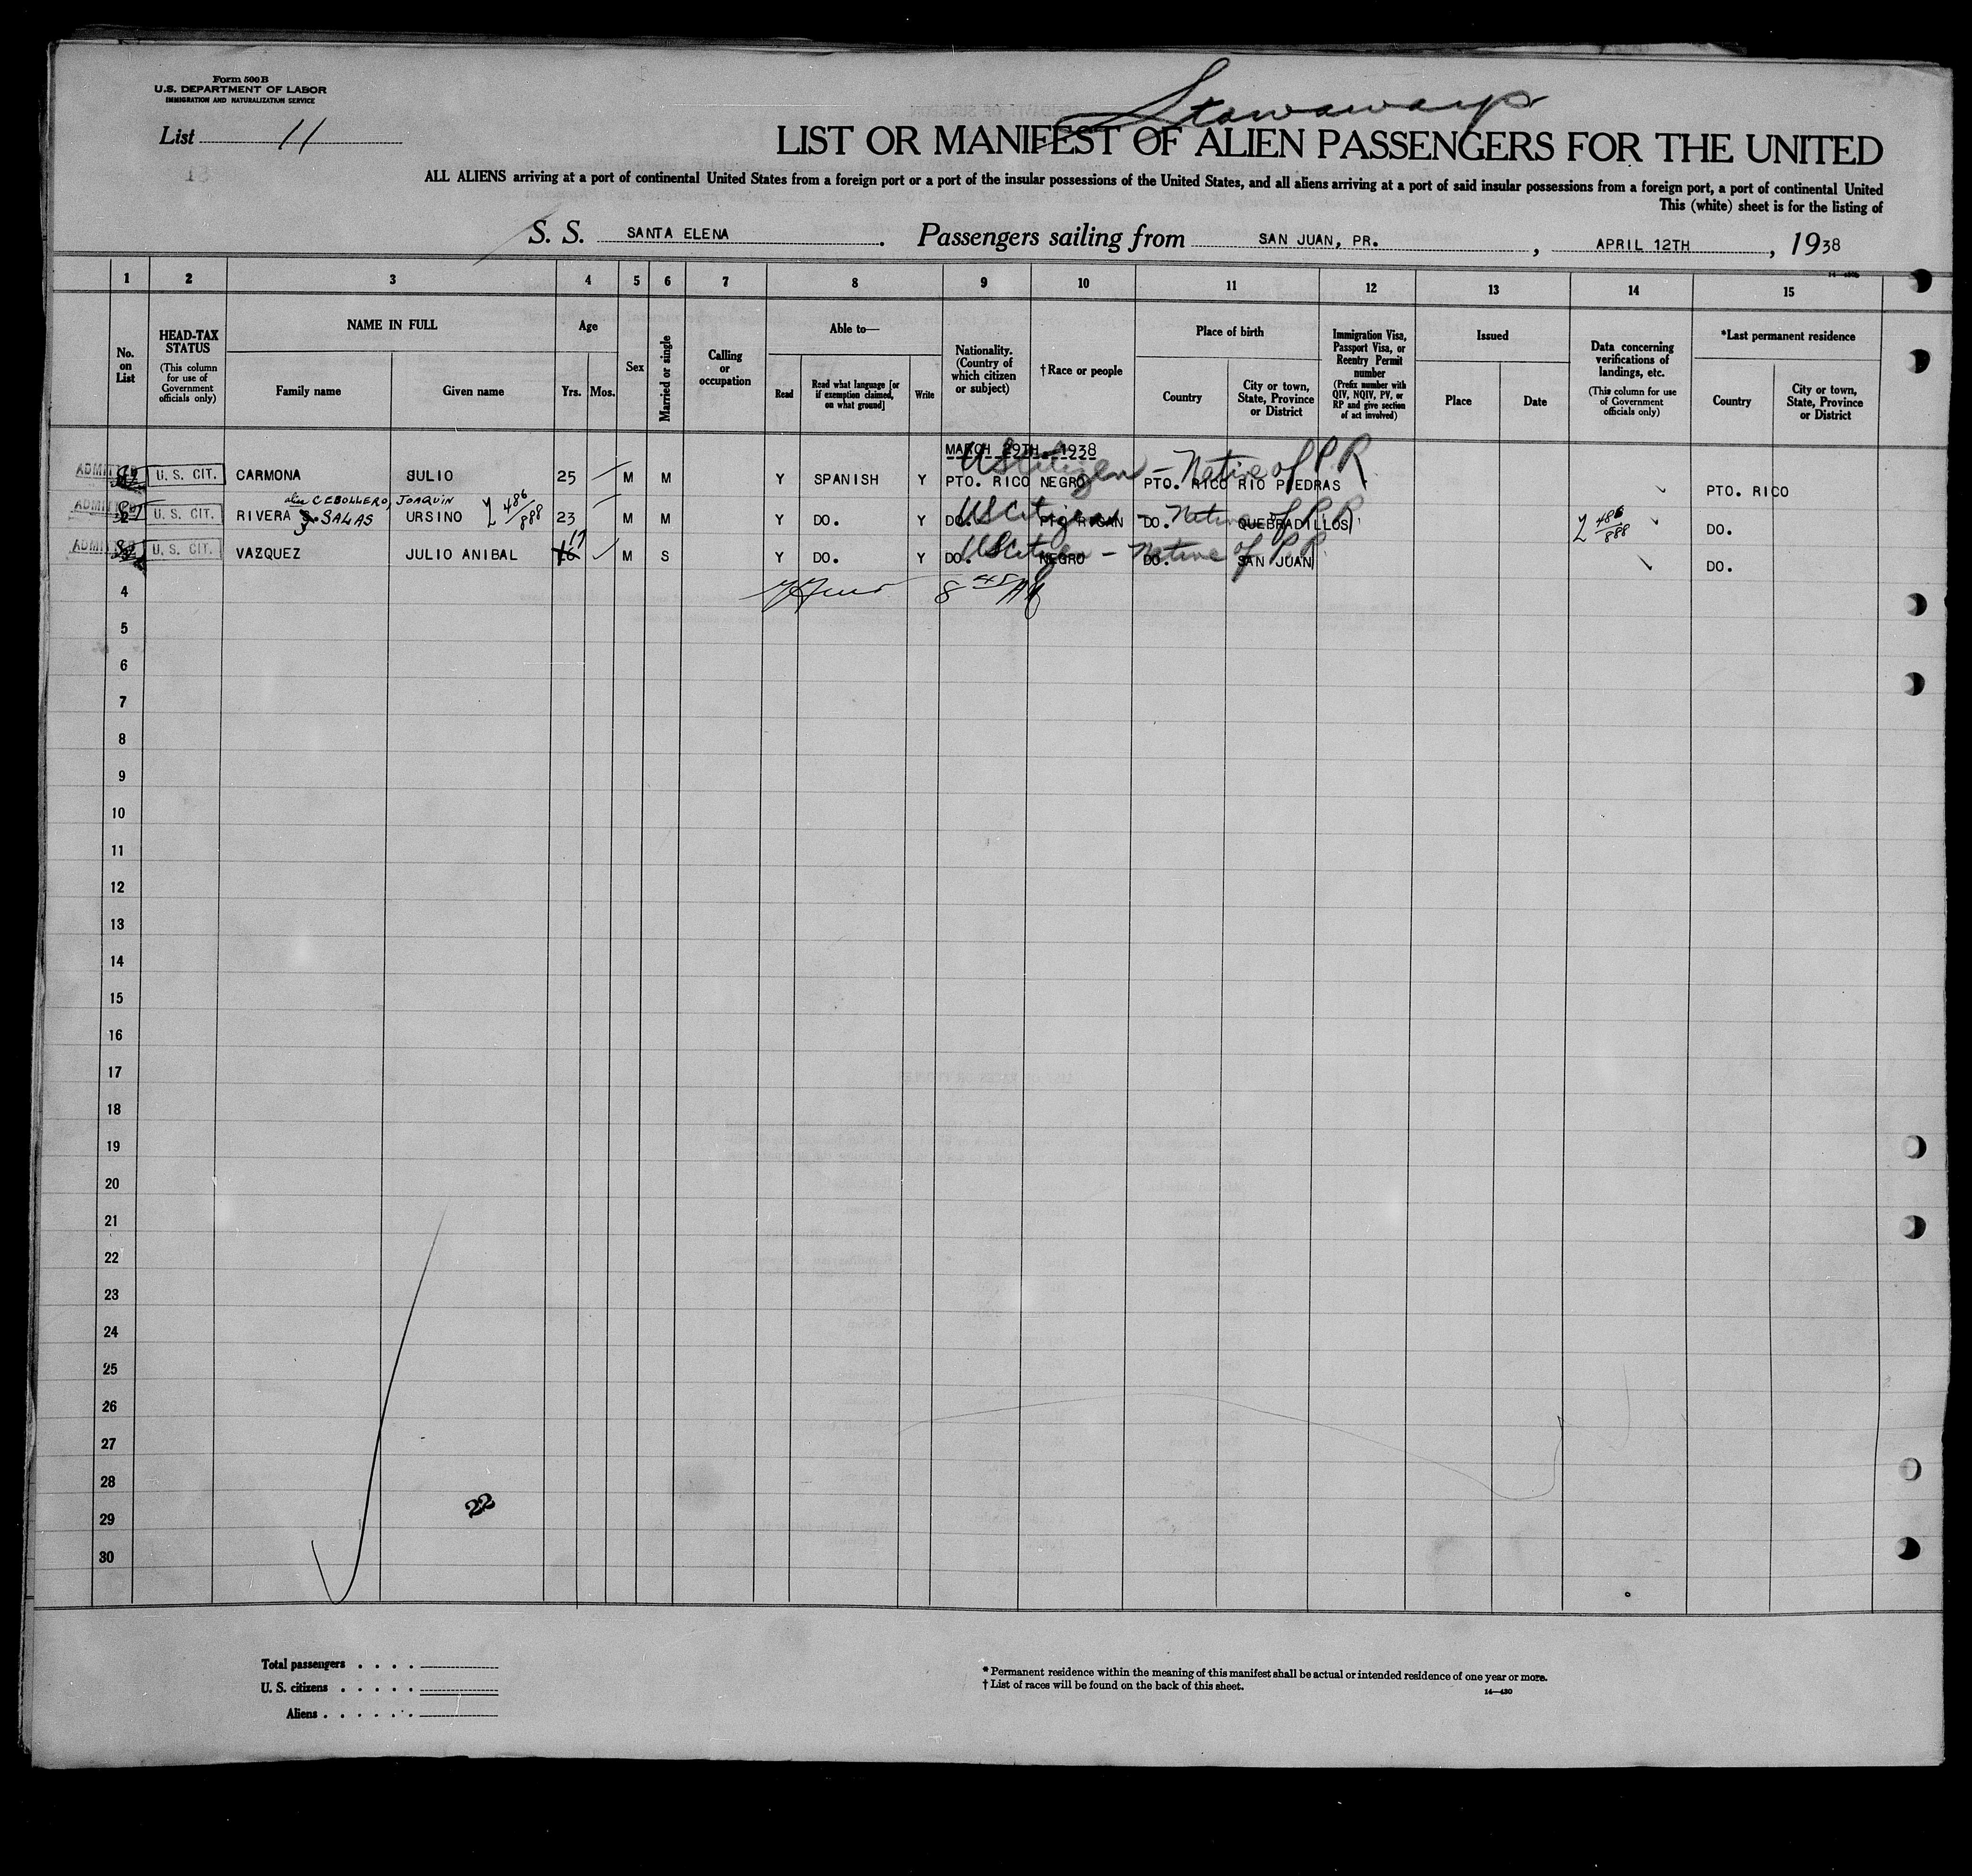 Form 500 B
U.S. DEPARTMENT OF LABOR
IMMIGRATION AND NATURALIZATION SERVICE
Stowaways
List 11
LIST OR MANIFEST OF ALIEN PASSENGERS FOR THE UNITED
ALL ALIENS arriving at a port of continental United States from a foreign port or a port of the insular possessions of the United States, and all aliens arriving at a port of said insular possessions from a foreign port, a port of continental United
This (white) sheet is for the listing of
S. S. SANTA ELENA. Passengers sailing from SAN JUAN, PR., APRIL 12TH, 1938
1 2 3 4 5 6 7 8 9 10 11 12 13 14 15
No. on List
HEAD-TAX STATUS
(This column for use of Government officials only)
NAME IN FULL
Family name
Given name
Age
Yrs. Mos.
Sex
Married or single
Calling or occupation
Able to—
Read
Read what language [or if exemption claimed, on what ground]
Write
Nationality. (Country of which citizen or subject)
†Race or people
Place of birth
Country
City or town, State, Province or District
Immigration Visa, Passport Visa, or Reentry Permit number
(Prefix number with QIV, NQIV, PV, or RP and give section of act involved)
Issued
Place
Date
Data concerning verifications of landings, etc.
(This column for use of Government officials only)
*Last permanent residence
Country
City or town, State, Province or District
MARCH 29TH. 1938
US Citizen - Native of P R
ADMITTED U. S. CIT. CARMONA JULIO 25 M M Y SPANISH Y PTO. RICO NEGRO PTO. RICO RIO PIEDRAS PTO. RICO
alias CEBOLLERO, JOAQUIN
US Citizen - Native of P R
ADMITTED 2 U. S. CIT. RIVERA S. SALAS URSINO 486/888 23 M M Y DO. Y DO. PTO RICAN DO. QUEBRADILLOS 486/888 DO.
US Citizen - Native of P.R.
ADMITTED U. S. CIT. VAZQUEZ JULIO ANIBAL 16 17 M S Y DO. Y DO. NEGRO DO. SAN JUAN DO.
4 8 45 AM
5
6
7
8
9
10
11
12
13
14
15
16
17
18
19
20
21
22
23
24
25
26
27
28
29
30
22
Total passengers . . . .
U. S. citizens . . . . .
Aliens . . . . . .
* Permanent residence within the meaning of this manifest shall be actual or intended residence of one year or more.
† List of races will be found on the back of this sheet.
14—430